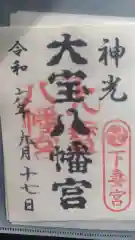 神光
大宝八幡宮
下妻宮
令和六年九月十七日